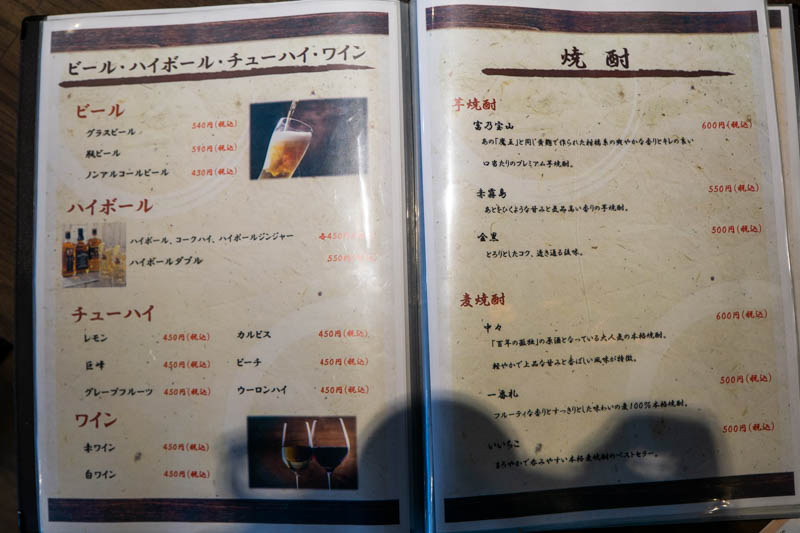 ビール・ハイボール・チューハイ・ワイン
ビール
グラスビール 540円(税込)
瓶ビール 590円(税込)
ノンアルコールビール 430円(税込)
ハイボール
ハイボール、コークハイ、ハイボールジンジャー 各450円(税込)
ハイボールダブル 550円(税込)
チューハイ
レモン 450円(税込) カルピス 450円(税込)
巨峰 450円(税込) ピーチ 450円(税込)
グレープフルーツ 450円(税込) ウーロンハイ 450円(税込)
ワイン
赤ワイン 450円(税込)
白ワイン 450円(税込)
焼酎
芋焼酎
富乃宝山 600円(税込)
あの「魔王」と同じ黄麹で作られた柑橘系の爽やかな香りとキレの良い
口当たりのプレミアム芋焼酎。
赤霧島 550円(税込)
あとをひくような甘みと気品高い香りの芋焼酎。
金黒 500円(税込)
とろりとしたコク、透き通る後味。
麦焼酎
中々 600円(税込)
「百年の孤独」の原酒となっている大人気の本格焼酎。
軽やかで上品な甘みと香ばしい風味が特徴。
一番札 500円(税込)
フルーティな香りとすっきりとした味わいの麦100%本格焼酎。
いいちこ 500円(税込)
まろやかで呑みやすい本格麦焼酎のベストセラー。